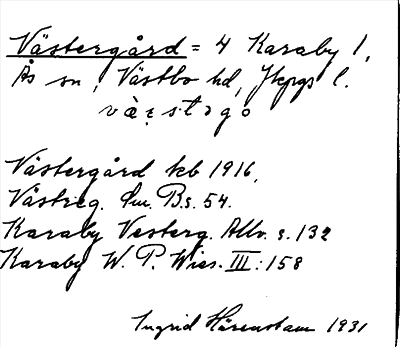 Västergård = 4 Karaby 1,
Ås sn, Västbo hd, Jkpgs l.
Västergård kb 1916,
Västreg. Bs. 54.
Karaby Vesterg. Allv. s. 132
Karaby W. P. Wies. III: 158
Ingrid Härenstam 1931